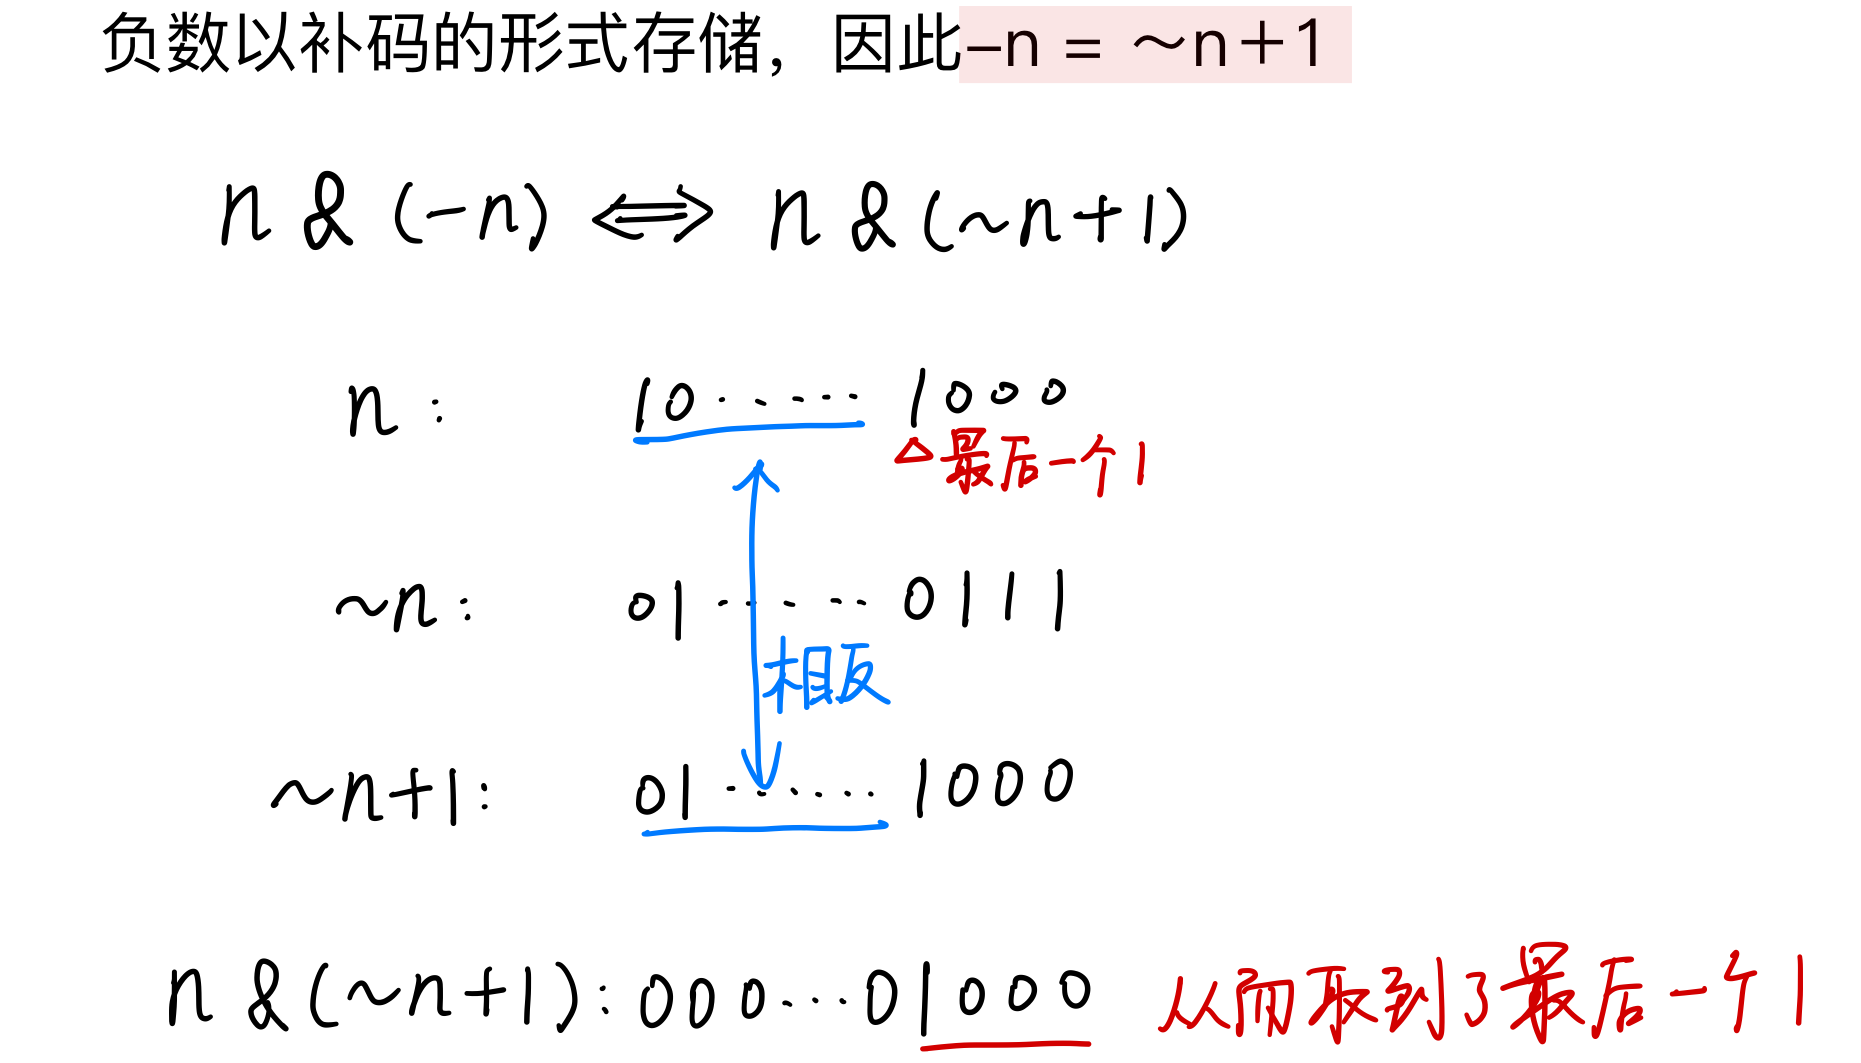 负数以补码的形式存储，因此-n = ～n＋1
n & (-n) ⟺ n & (~n+1)
n： 10······ 1000
△最后一个1
~n： 01······ 0111
相反
~n+1： 01······ 1000
n & (~n+1)：000···01000 从而取到了最后一个1